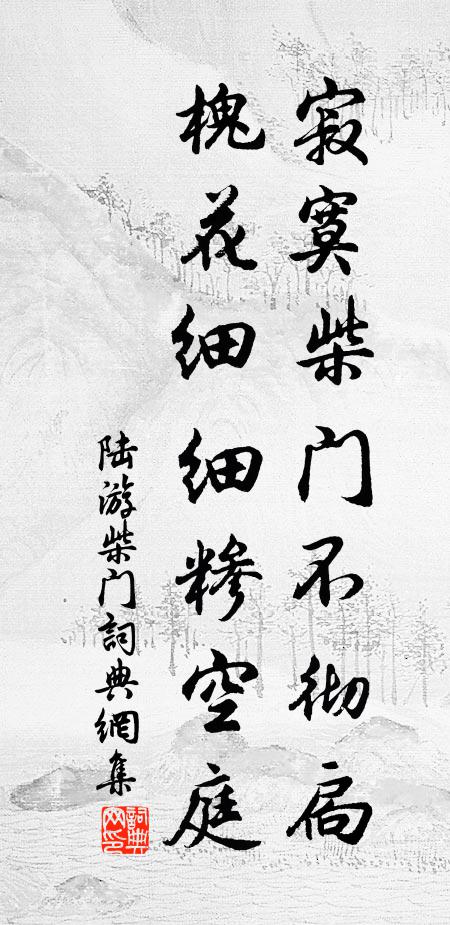 寂寞柴门不彻扃
槐花细细糁空庭
陆游柴门詞典網集
詞典
网印